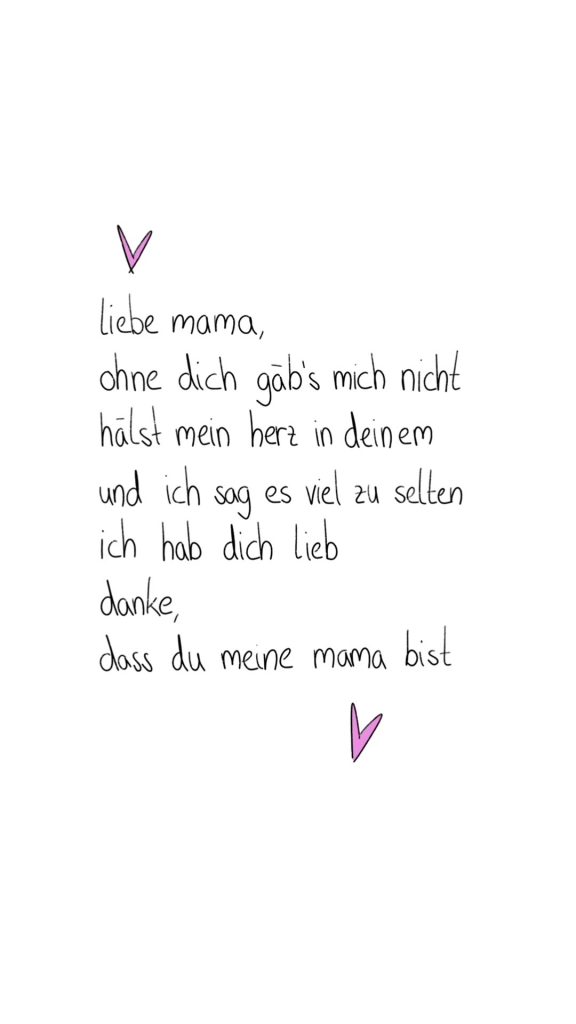 liebe mama,
ohne dich gäb's mich nicht
hälst mein herz in deinem
und ich sag es viel zu selten
ich hab dich lieb
danke,
dass du meine mama bist